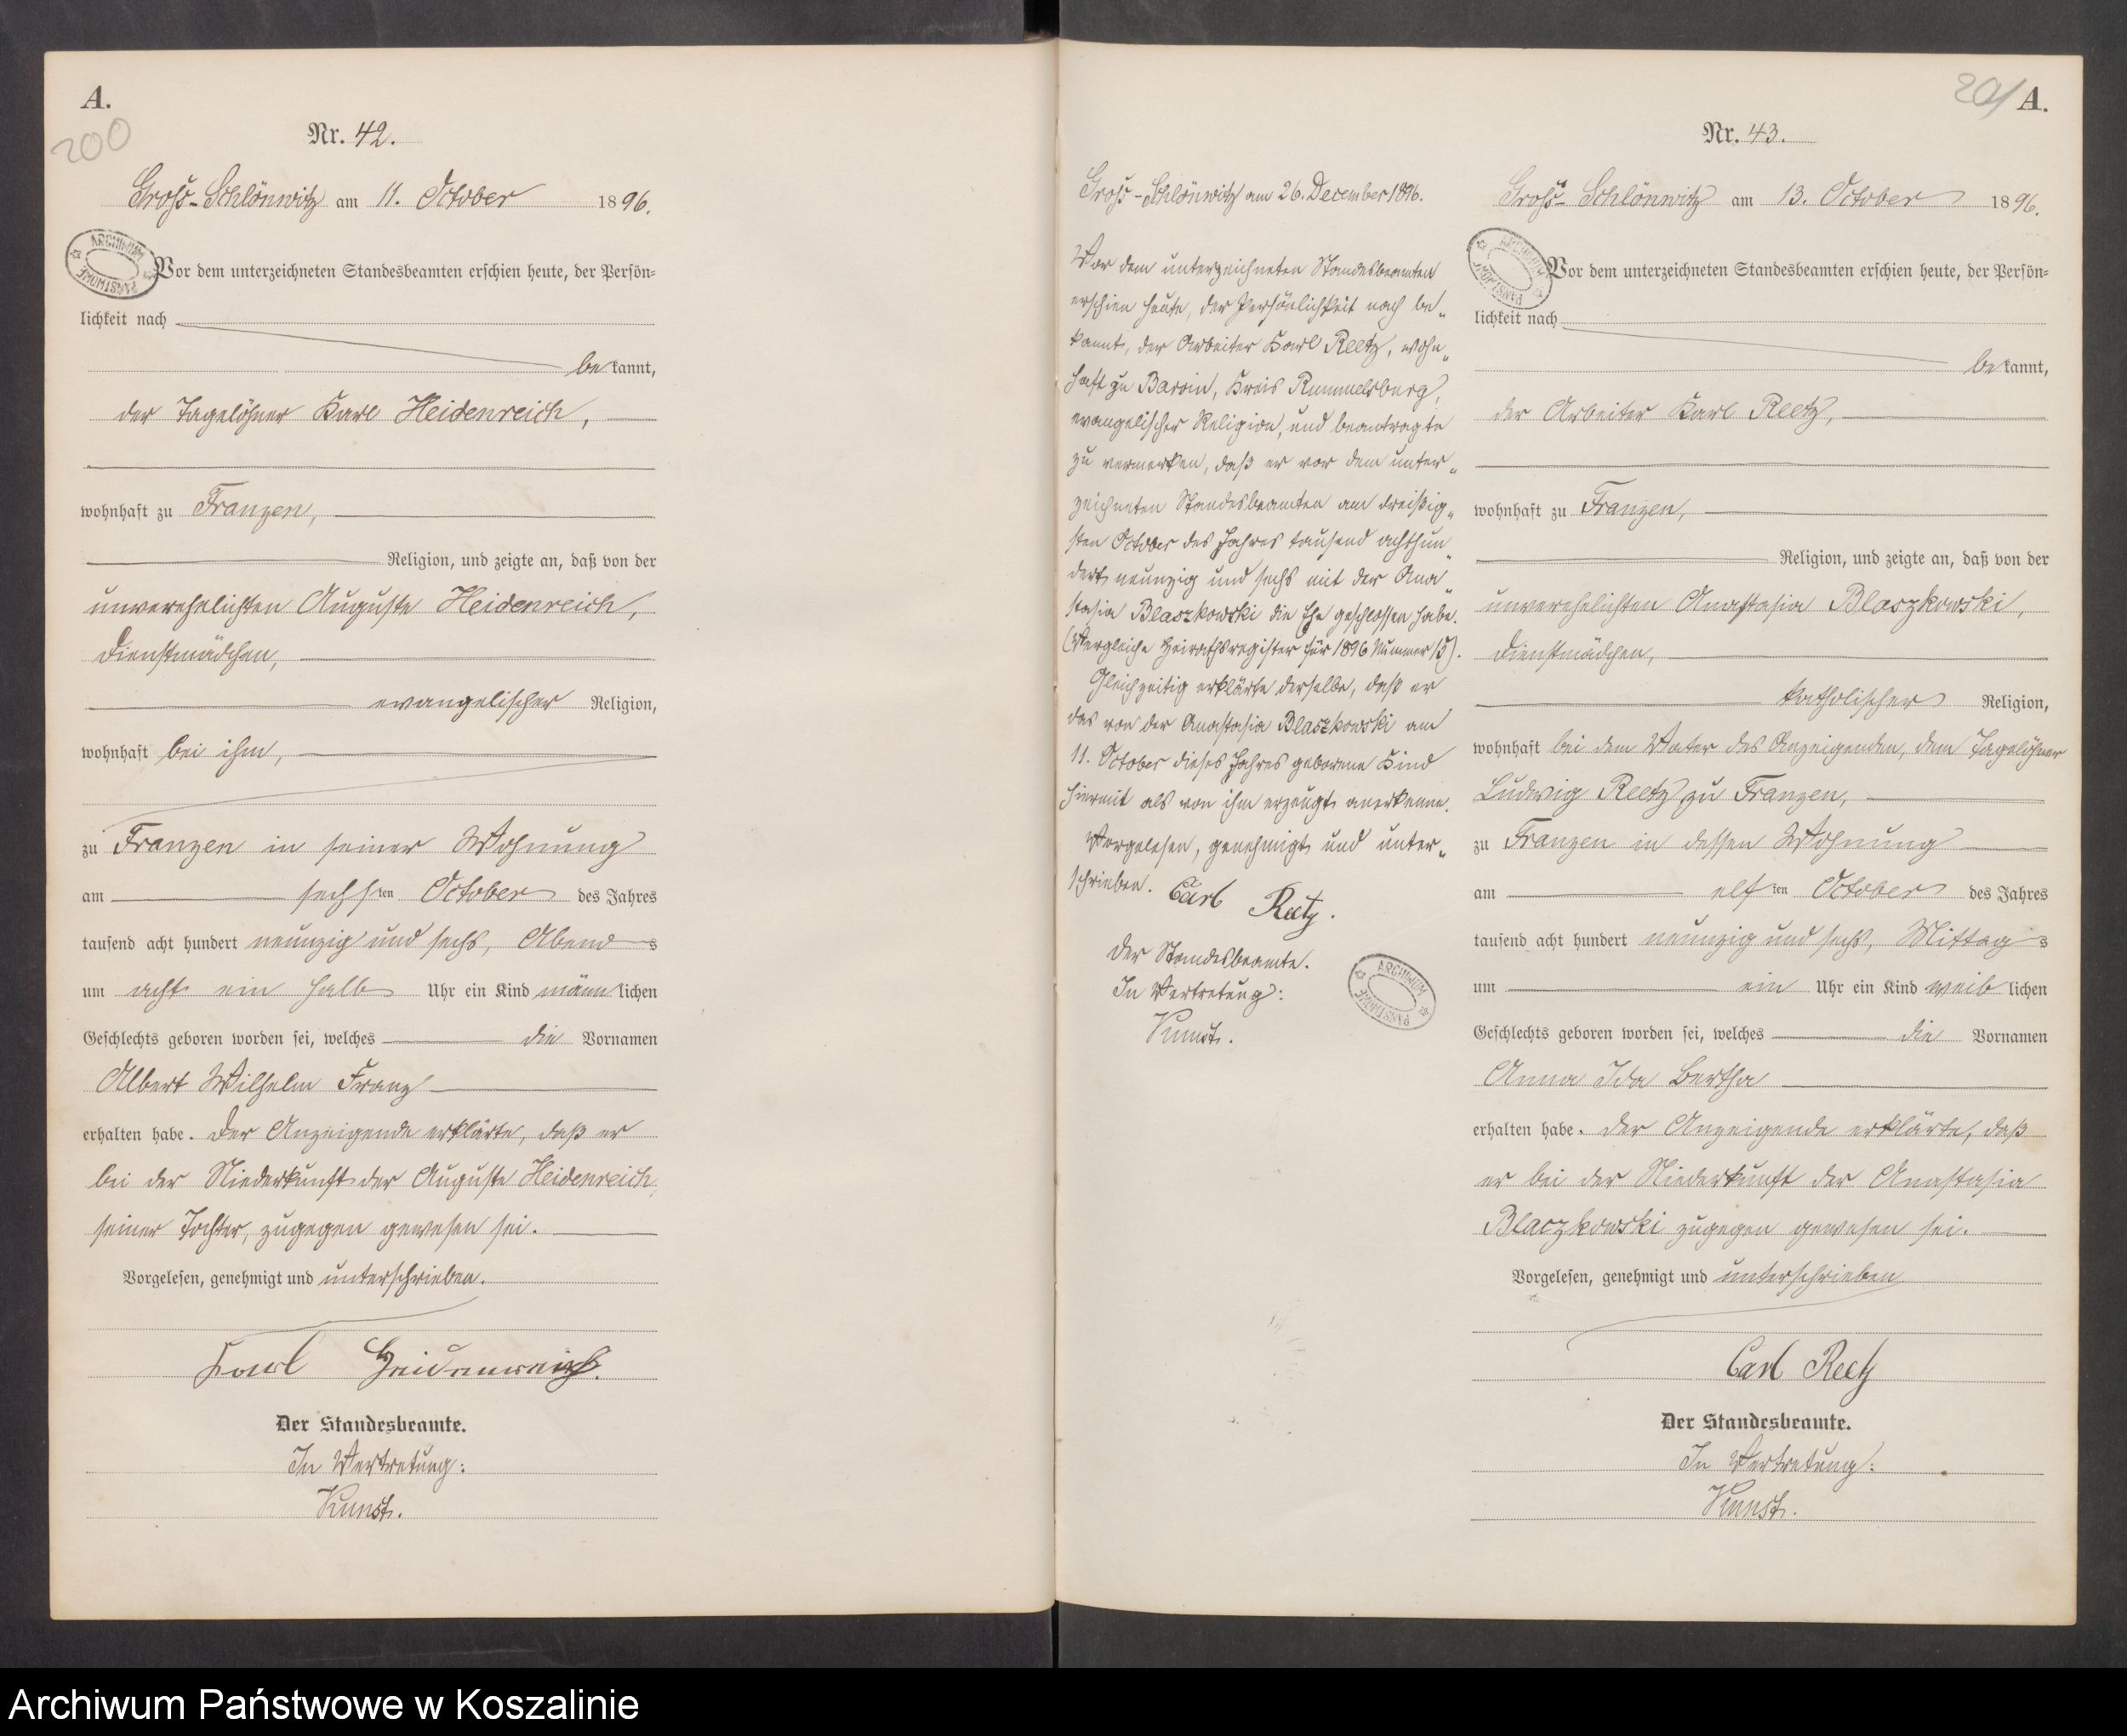 A.
200
Nr. 42.
Groß-Schlönwitz am 11. October 1896.
ARCHIWUM PAŃSTWOWE
Vor dem unterzeichneten Standesbeamten erschien heute, der Persön=
lichkeit nach
bekannt,
der Tagelöhner Karl Heidenreich,
wohnhaft zu Franzen,
Religion, und zeigte an, daß von der
unverehelichten Auguste Heidenreich,
Dienstmädchen,
evangelischer Religion,
wohnhaft bei ihm,
zu Franzen in seiner Wohnung
am sechsten October des Jahres
tausend acht hundert neunzig und sechs, Abends
um acht ein halb Uhr ein Kind männlichen
Geschlechts geboren worden sei, welches die Vornamen
Albert Wilhelm Franz
erhalten habe. Der Anzeigende erklärte, daß er
bei der Niederkunft der Auguste Heidenreich,
seiner Tochter, zugegen gewesen sei.
Vorgelesen, genehmigt und unterschrieben.
Karl Heidenreich.
Der Standesbeamte.
In Vertretung:
Kunst.
Groß-Schlönwitz am 26. December 1896.
Vor dem unterzeichneten Standesbeamten
erschien heute, der Persönlichkeit nach be„
kannt, der Arbeiter Karl Reetz, wohn„
haft zu Barvin, Kreis Rummelsburg,
evangelischer Religion, und beantragte
zu vermerken, daß er vor dem unter„
zeichneten Standesbeamten am dreißig„
sten October des Jahres tausend achthun„
dert neunzig und sechs mit der Ana„
stasia Blaszkowski die Ehe geschlossen habe.
(Vergleiche Heirathsregister für 1896 Nummer 15).
Gleichzeitig erklärte derselbe, daß er
das von der Anastasia Blaszkowski am
11. October dieses Jahres geborene Kind
hiermit als von ihm erzeugt anerkenne.
Vorgelesen, genehmigt und unter„
schrieben. Carl Reetz.
Der Standesbeamte.
In Vertretung:
Kunst.
ARCHIWUM PAŃSTWOWE
201 A.
Nr. 43.
Groß-Schlönwitz am 13. October 1896.
ARCHIWUM PAŃSTWOWE
Vor dem unterzeichneten Standesbeamten erschien heute, der Persön=
lichkeit nach
bekannt,
der Arbeiter Karl Reetz,
wohnhaft zu Franzen,
Religion, und zeigte an, daß von der
unverehelichten Anastasia Blaszkowski,
Dienstmädchen,
katholischer Religion,
wohnhaft bei dem Vater des Anzeigenden, dem Tagelöhner
Ludwig Reetz zu Franzen,
zu Franzen in dessen Wohnung
am elften October des Jahres
tausend acht hundert neunzig und sechs, Mittags
um ein Uhr ein Kind weiblichen
Geschlechts geboren worden sei, welches die Vornamen
Anna Ida Bertha
erhalten habe. Der Anzeigende erklärte, daß
er bei der Niederkunft der Anastasia
Blaczkowski zugegen gewesen sei.
Vorgelesen, genehmigt und unterschrieben
Carl Reetz
Der Standesbeamte.
In Vertretung:
Kunst.
Archiwum Państwowe w Koszalinie